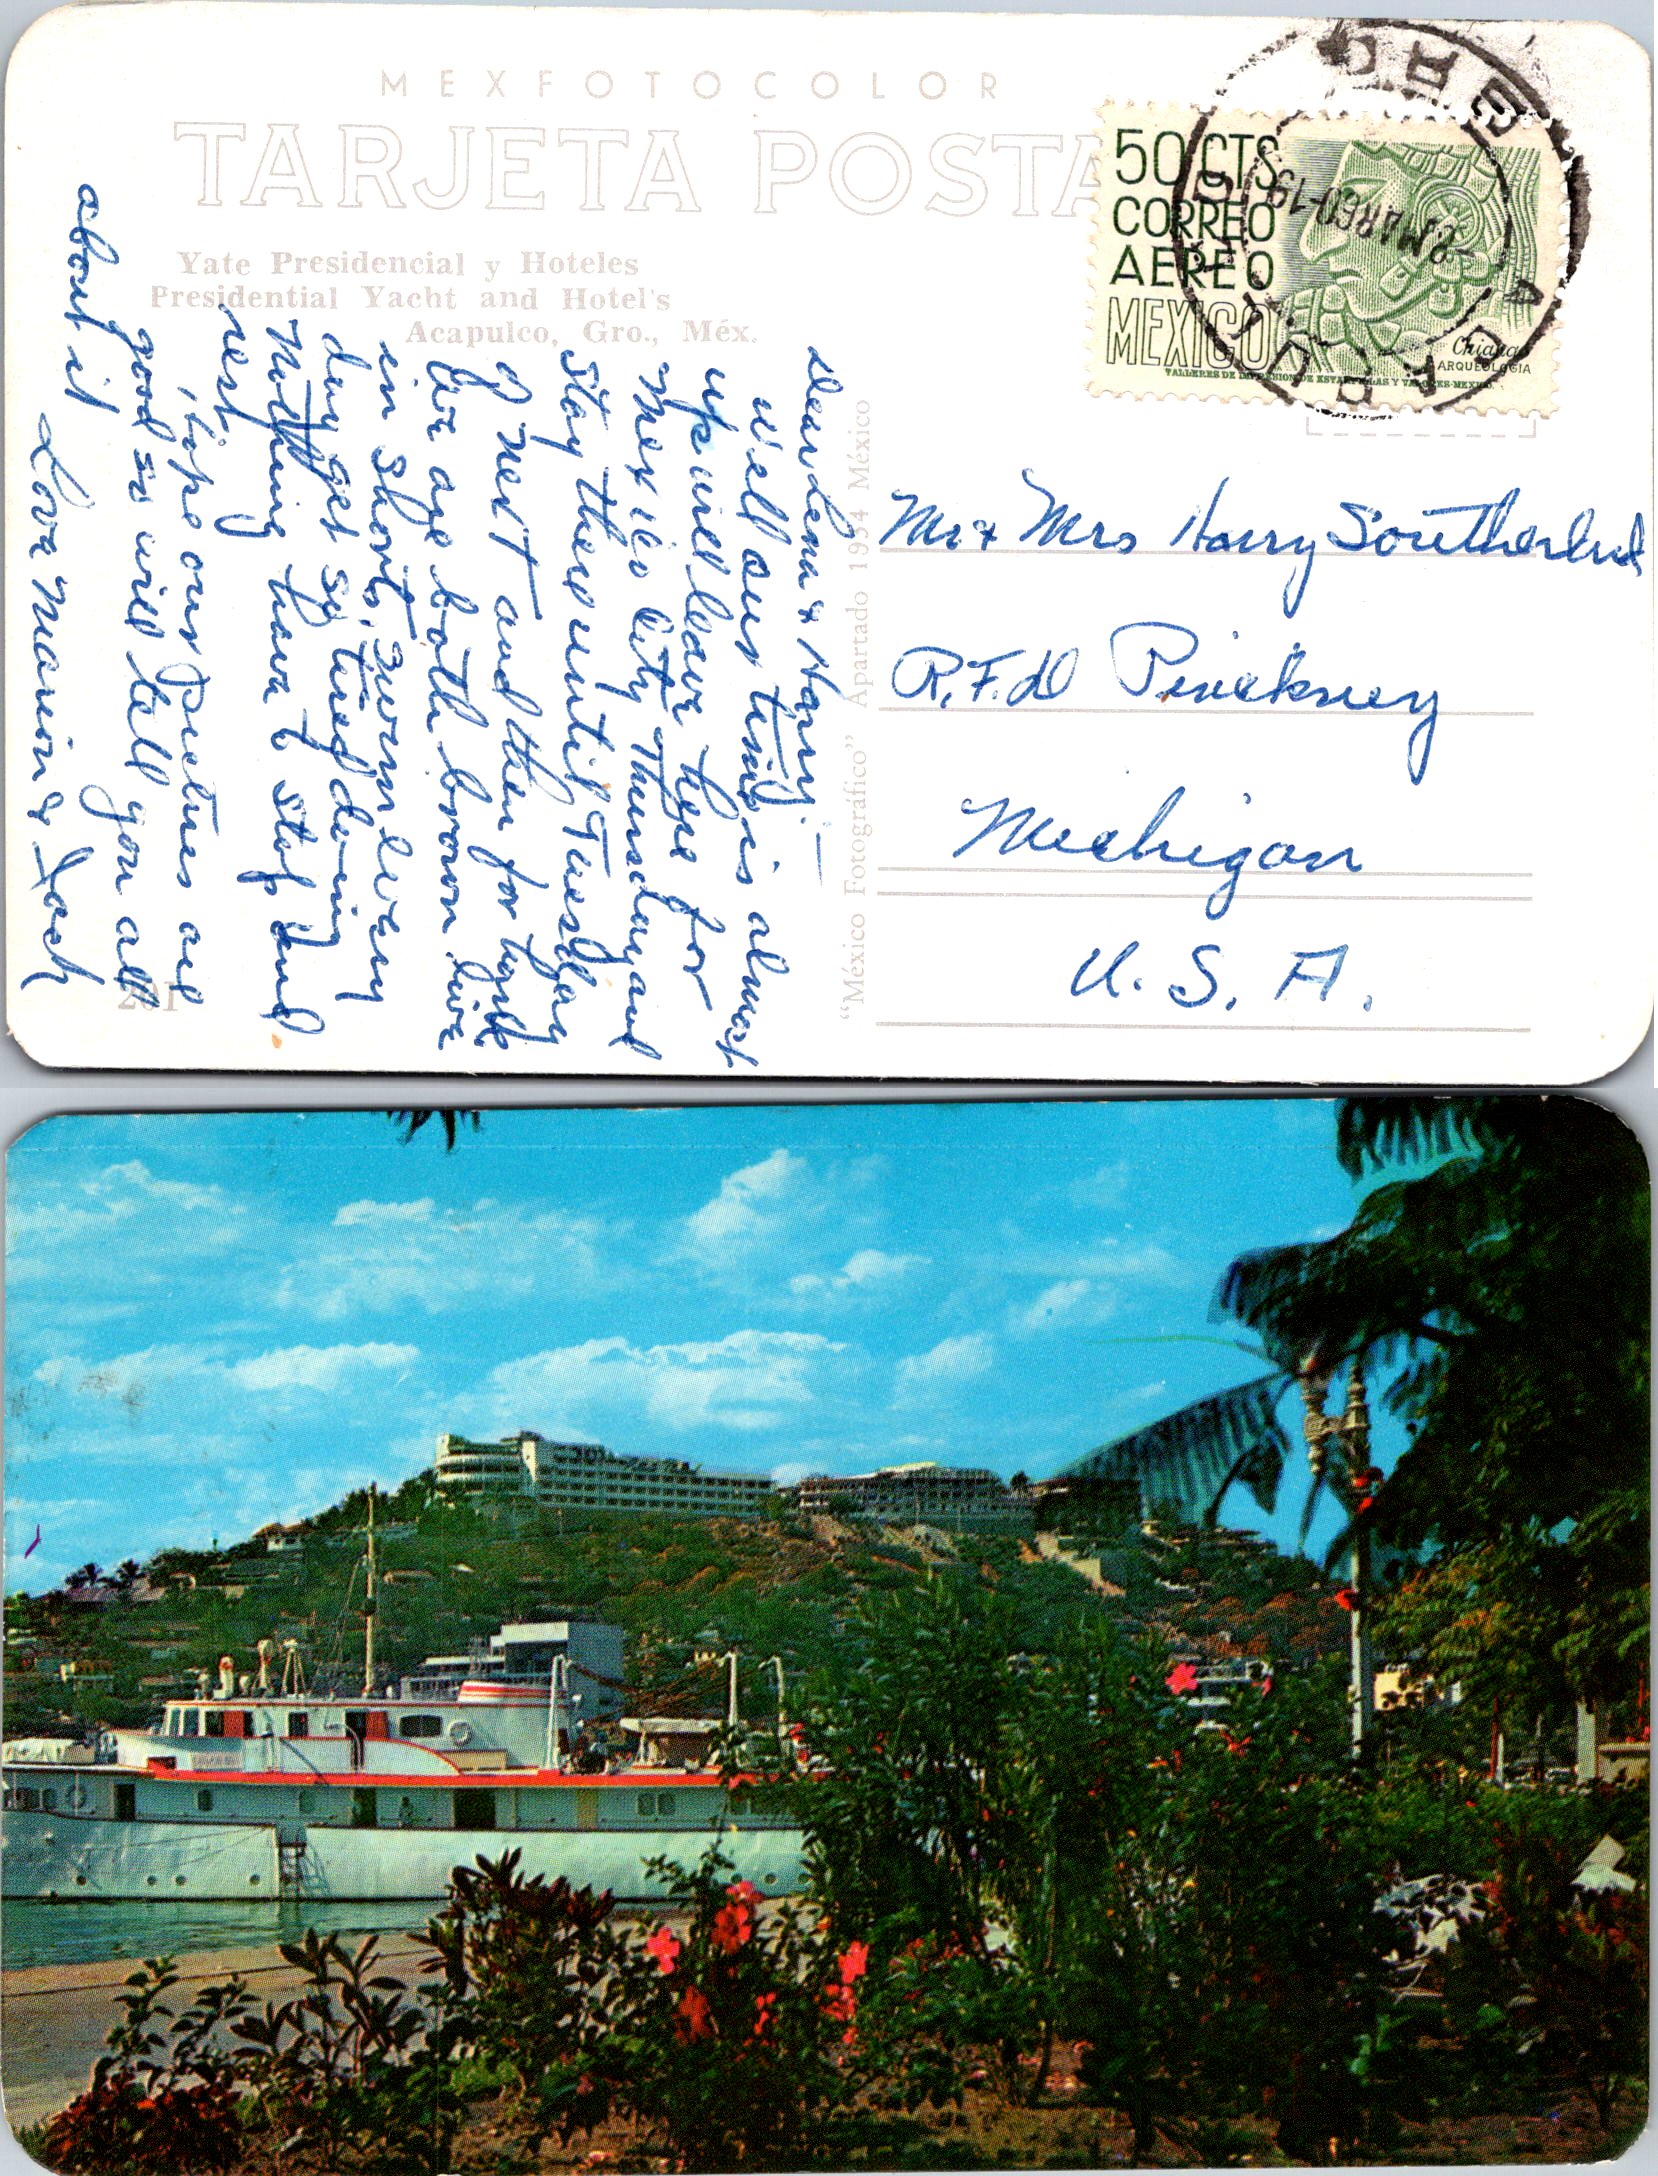 MEXFOTOCOLOR
TARJETA POSTA
Yate Presidencial y Hoteles
Presidential Yacht and Hotel's
Acapulco, Gro., Méx.
50 CTS
CORREO
AEREO
MEXICO
Chiapas
ARQUEOLOGIA
TALLERES DE IMPRESION DE ESTAMPILLAS Y VALORES-MEXICO
MAR 60-19
Dear Lena & Harry:—
Well our time is almost
up will leave here for
Mexico City Thursday and
Stay there until Tuesday
Next and then for
We are both brown live
in shorts, swim every
day get so tired doing
Nothing have to stop and
rest
Hope our pictures are
good so will tell you all
about it
Love Marion & Jack
201
"México Fotográfico" Apartado 1954 México
Mr & Mrs Harry Southerland
R.F.D Pinckney
Michigan
U. S. A.